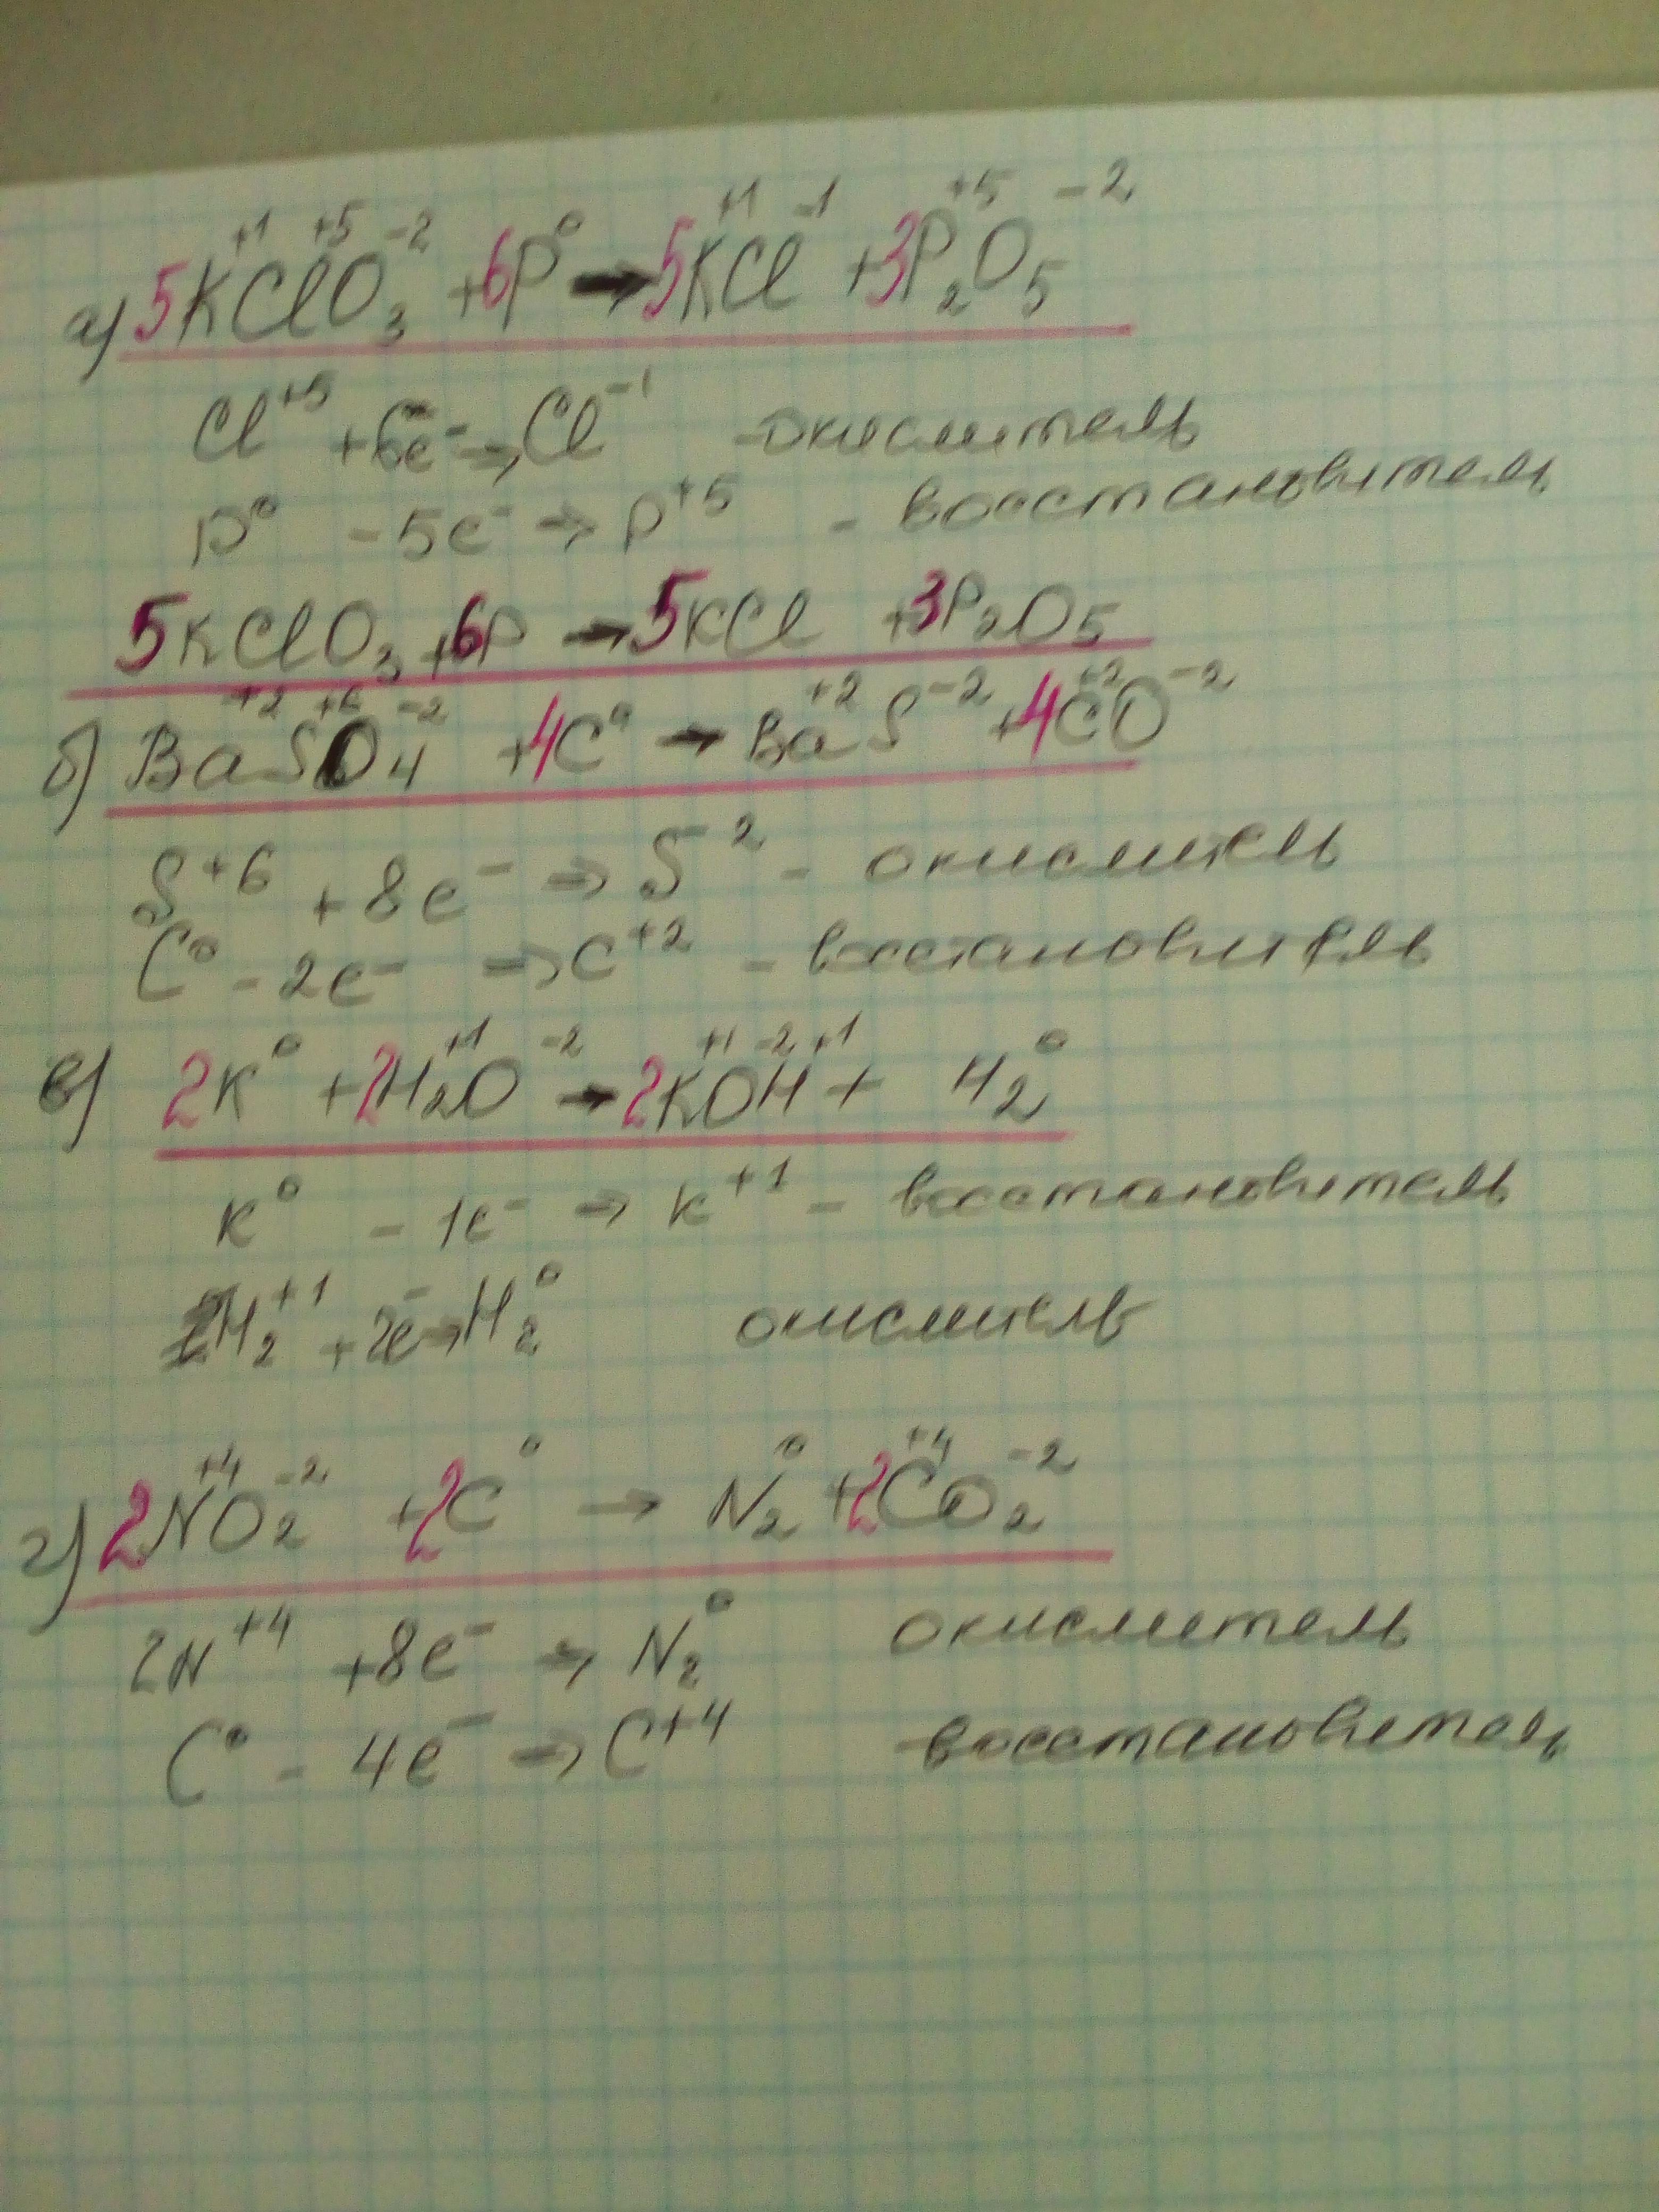 а) 5K⁺¹Cl⁺⁵O₃⁻² + 6P⁰ → 5K⁺¹Cl⁻¹ + 3P₂⁺⁵O₅⁻²
Cl⁺⁵ + 6e⁻ → Cl⁻¹ - окислитель
P⁰ - 5e⁻ → P⁺⁵ - восстановитель
5KClO₃ + 6P → 5KCl + 3P₂O₅
б) Ba⁺²S⁺⁶O₄⁻² + 4C⁰ → Ba⁺²S⁻² + 4C⁺²O⁻²
S⁺⁶ + 8e⁻ → S⁻² - окислитель
C⁰ - 2e⁻ → C⁺² - восстановитель
в) 2K⁰ + 2H₂⁺¹O⁻² → 2K⁺¹O⁻²H⁺¹ + H₂⁰
K⁰ - 1e⁻ → K⁺¹ - восстановитель
H₂⁺¹ + 2e⁻ → H₂⁰ окислитель
г) 2N⁺⁴O₂⁻² + 2C⁰ → N₂⁰ + 2C⁺⁴O₂⁻²
2N⁺⁴ + 8e⁻ → N₂⁰ окислитель
C⁰ - 4e⁻ → C⁺⁴ - восстановитель